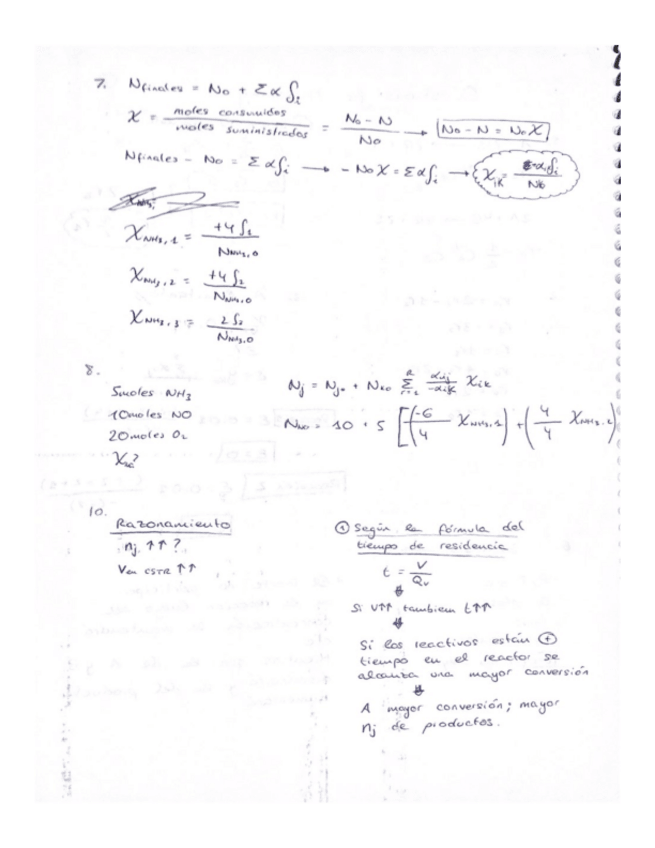 7. Nfinales = No + Σ α ξi
χ = moles consumidos / moles suministrados = No - N / No → No - N = No χ
Nfinales - No = Σ α ξi → - No χ = Σ α ξi → χik = Σ-αi ξi / Nk
χNH3,1 = +4 ξ1 / NNH3,0
χNH3,2 = +4 ξ2 / NNH3,0
χNH3,3 = 2 ξ2 / NNH3,0
8.
5moles NH3
10moles NO
20moles O2
Nj = Njo + Nko Σ αij / -αik χik
NNO = 10 + 5 [(-6/4 χNH3,1) + (4/4 χNH3,2)
10.
Razonamiento
nj ↑↑ ?
Ven CSTR ↑↑
① Según la fórmula del
tiempo de residencia
t = V / Qv
Si V↑↑ tambien t↑↑
Si los reactivos están ⊕
tiempo en el reactor se
alcanza una mayor conversión
A mayor conversión; mayor
nj de productos.